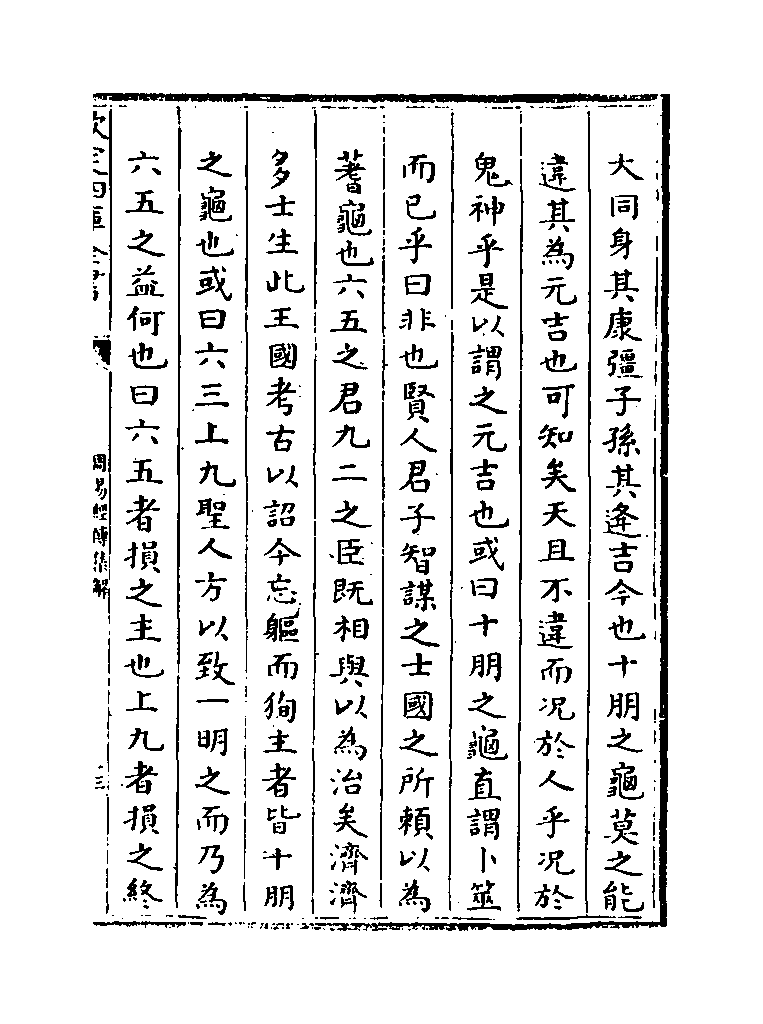 大同身其康彊子孫其逄吉今也十朋之龜莫之能
違其為元吉也可知矣天且不違而况於人乎况於
鬼神乎是以謂之元吉也或曰十朋之龜直謂卜筮
而已乎曰非也賢人君子智謀之士國之所頼以為
蓍龜也六五之君九二之臣既相與以為治矣濟濟
多士生此王國考古以詔今忘軀而狥主者皆十朋
之龜也或曰六三上九聖人方以致一明之而乃為
六五之益何也曰六五者損之主也上九者損之終
欽定四庫全書
周易經傳集解
三